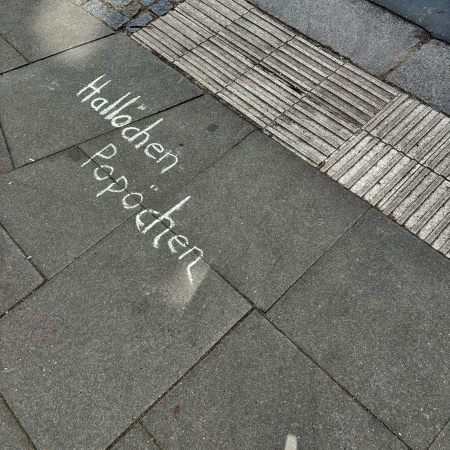 Hallöchen
Popöchen